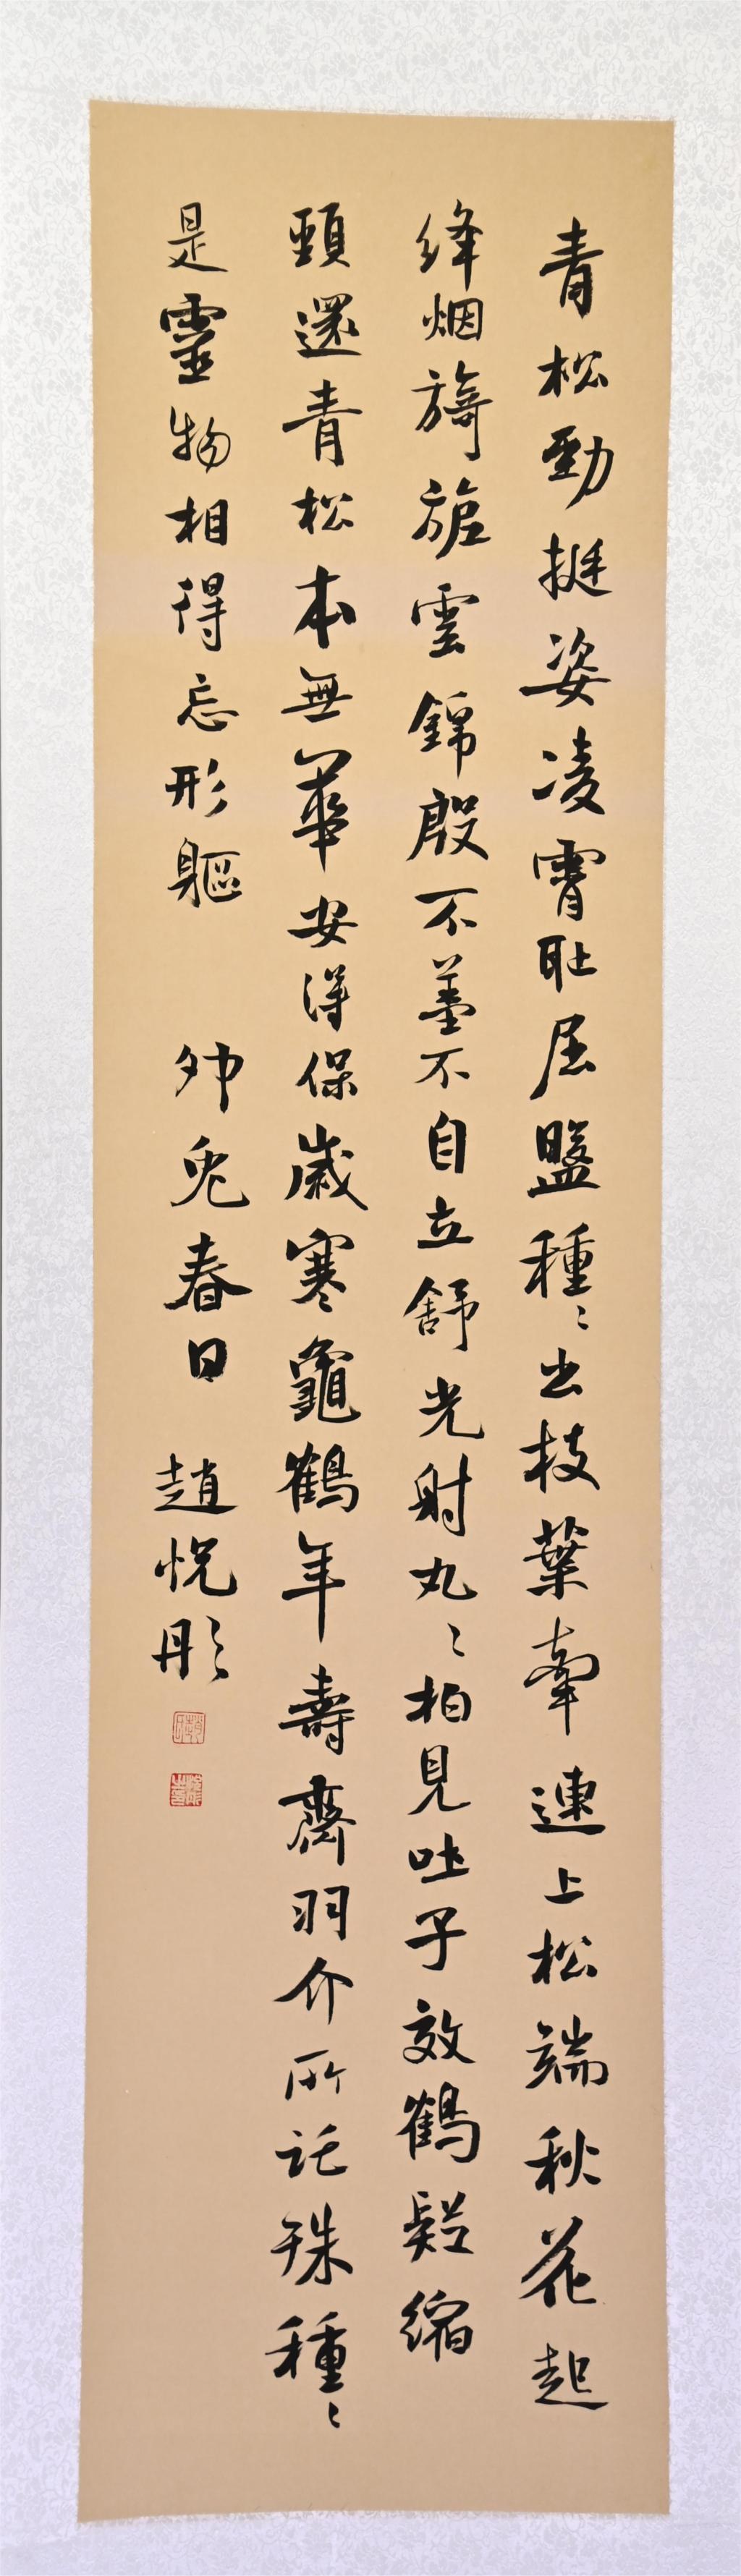 青松勁挺姿凌霄耻屈盤種〻出枝葉牽連上松端秋花起
絳烟旖旎雲錦殷不羞不自立舒光射丸〻柏見吐子效鶴疑縮
頸還青松本無華安得保歲寒龜鶴年壽齊羽介所託殊種〻
是靈物相得忘形軀
卯兔春日
趙悦彤